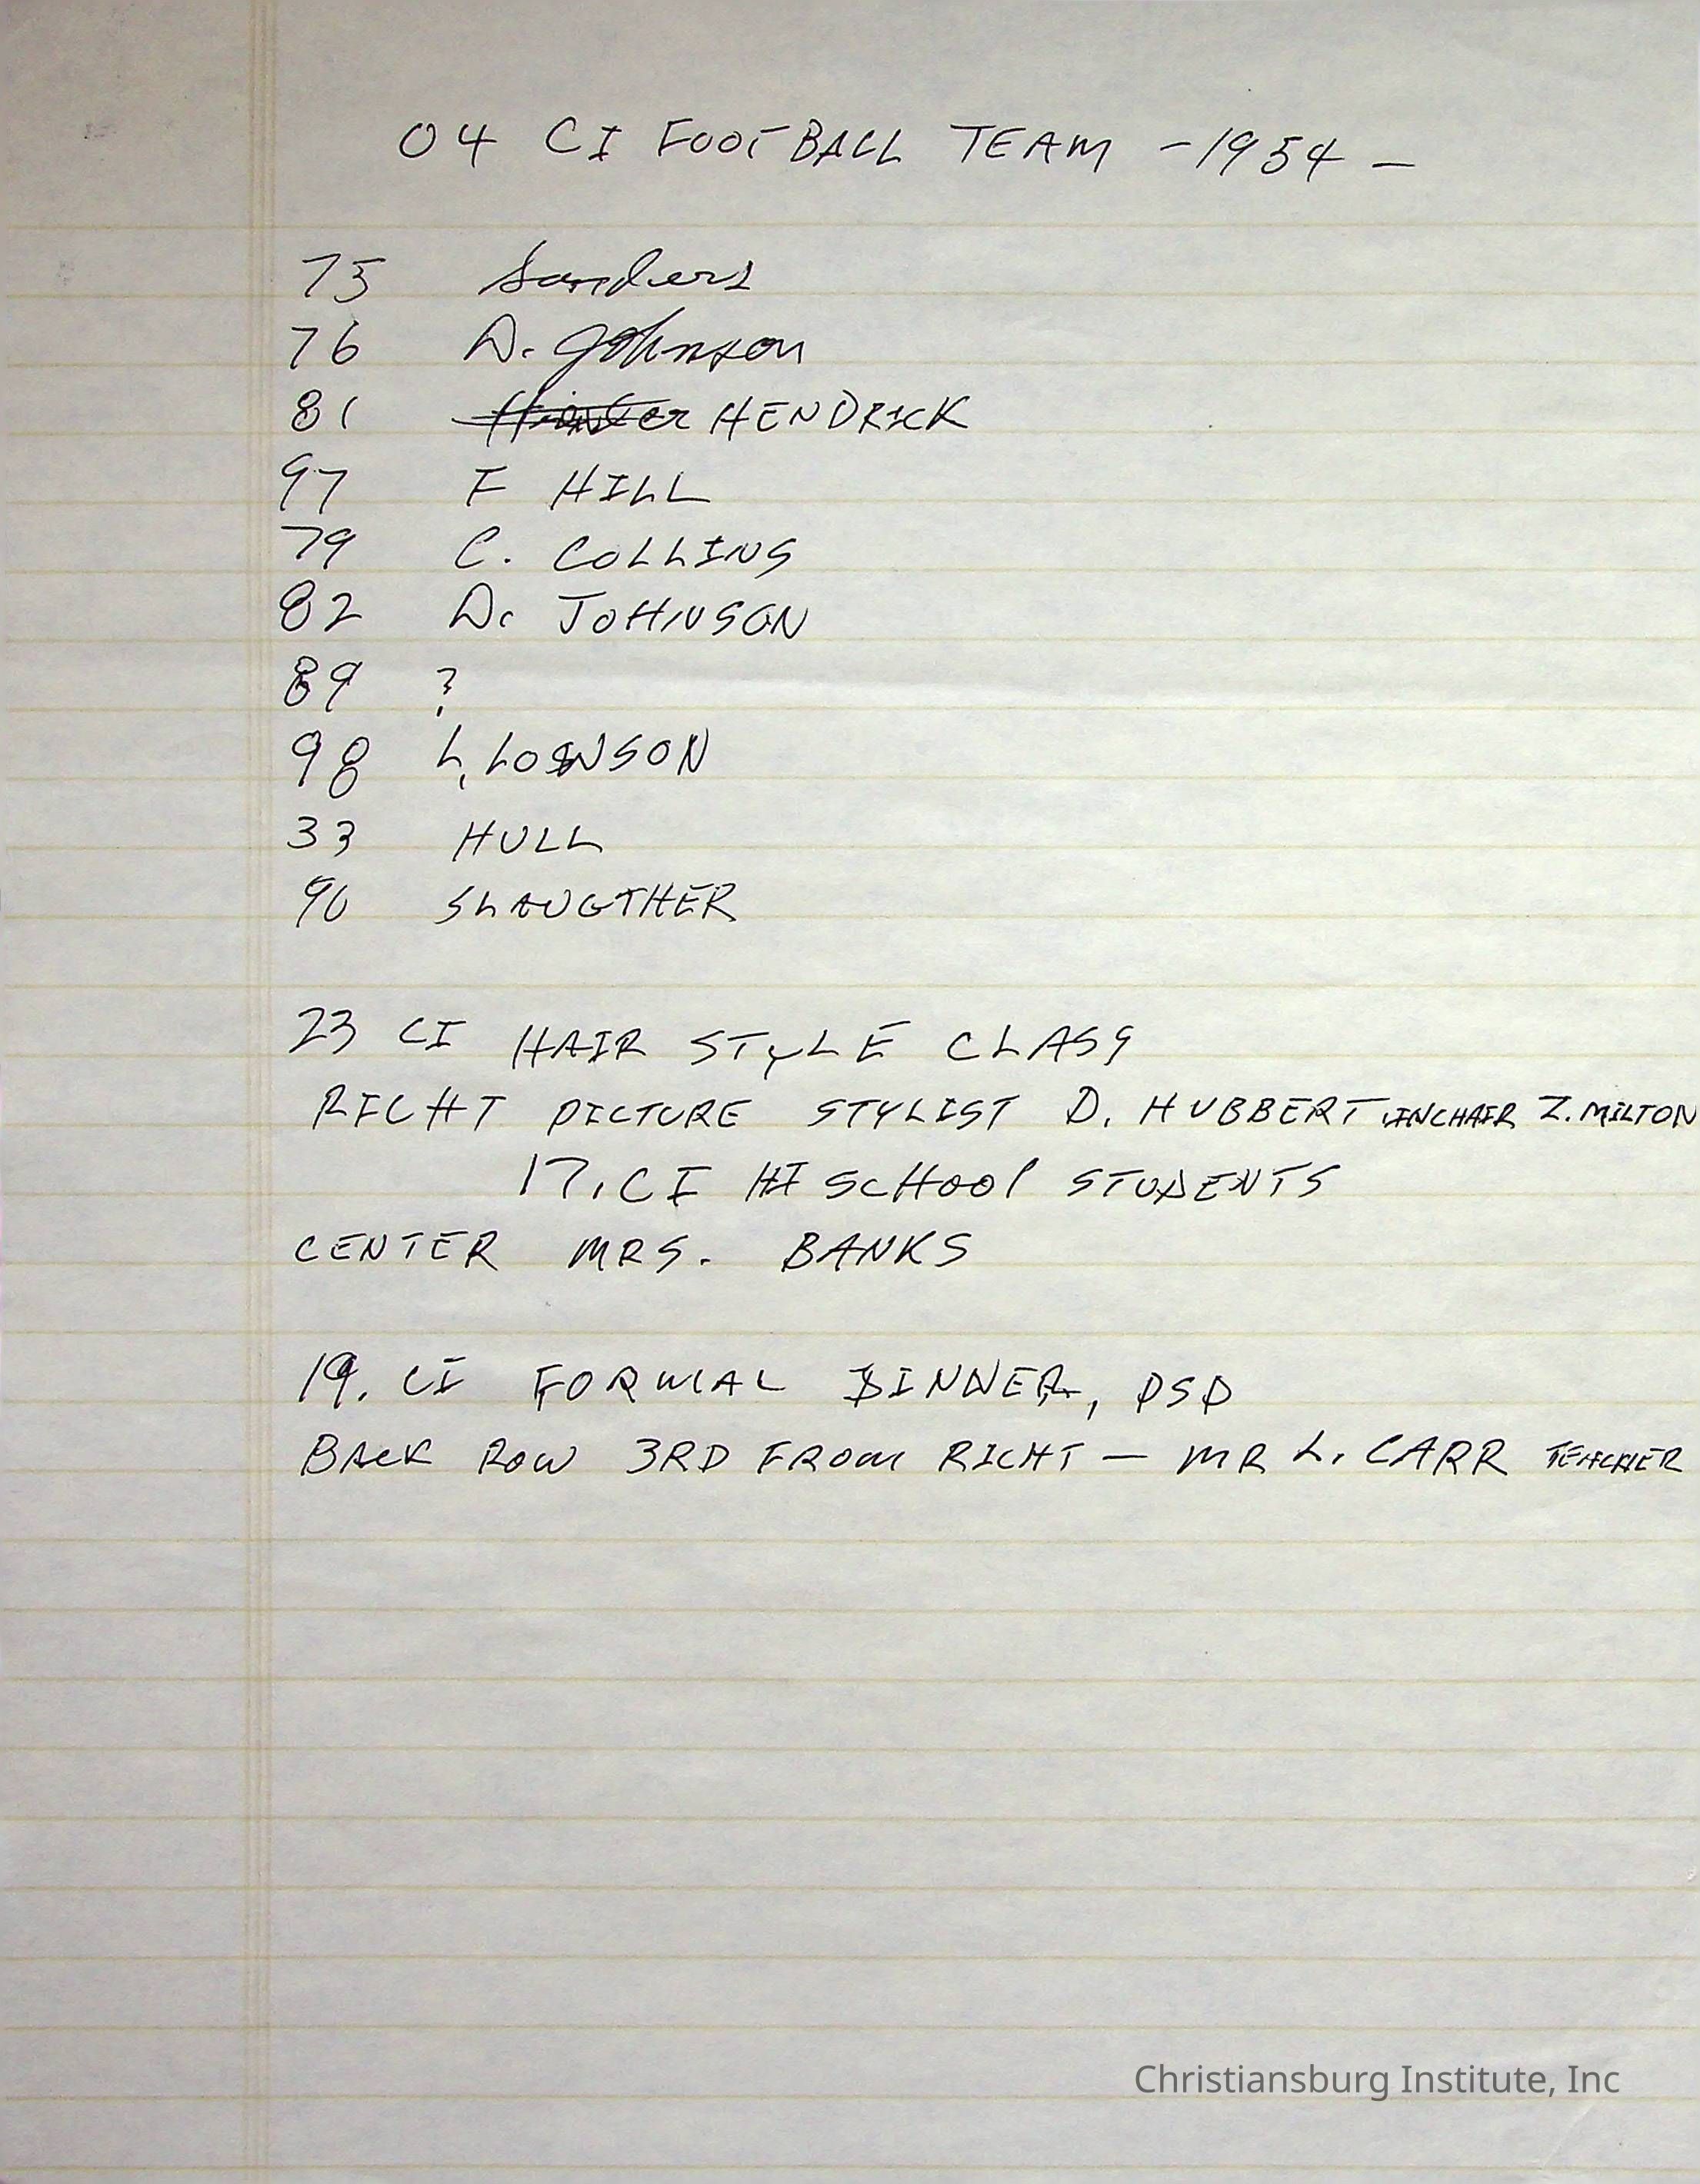 04 CI FOOTBALL TEAM - 1954 -
75 Sanders
76 D. Johnson
81 Hunter HENDRICK
97 F HILL
79 C. COLLINS
82 D. JOHNSON
89 ?
98 L,
33 HULL
90 SLAUGTHER
23 CI HAIR STYLE CLASS
RIGHT PICTURE STYLIST D. HUBBERT, INCHAIR Z. MILTON
17, CI HI SCHOOL STUDENTS
CENTER MRS. BANKS
19. CI FORMAL DINNER, PSD
BACK ROW 3RD FROM RIGHT — MR L. CARR TEACHER
Christiansburg Institute, Inc